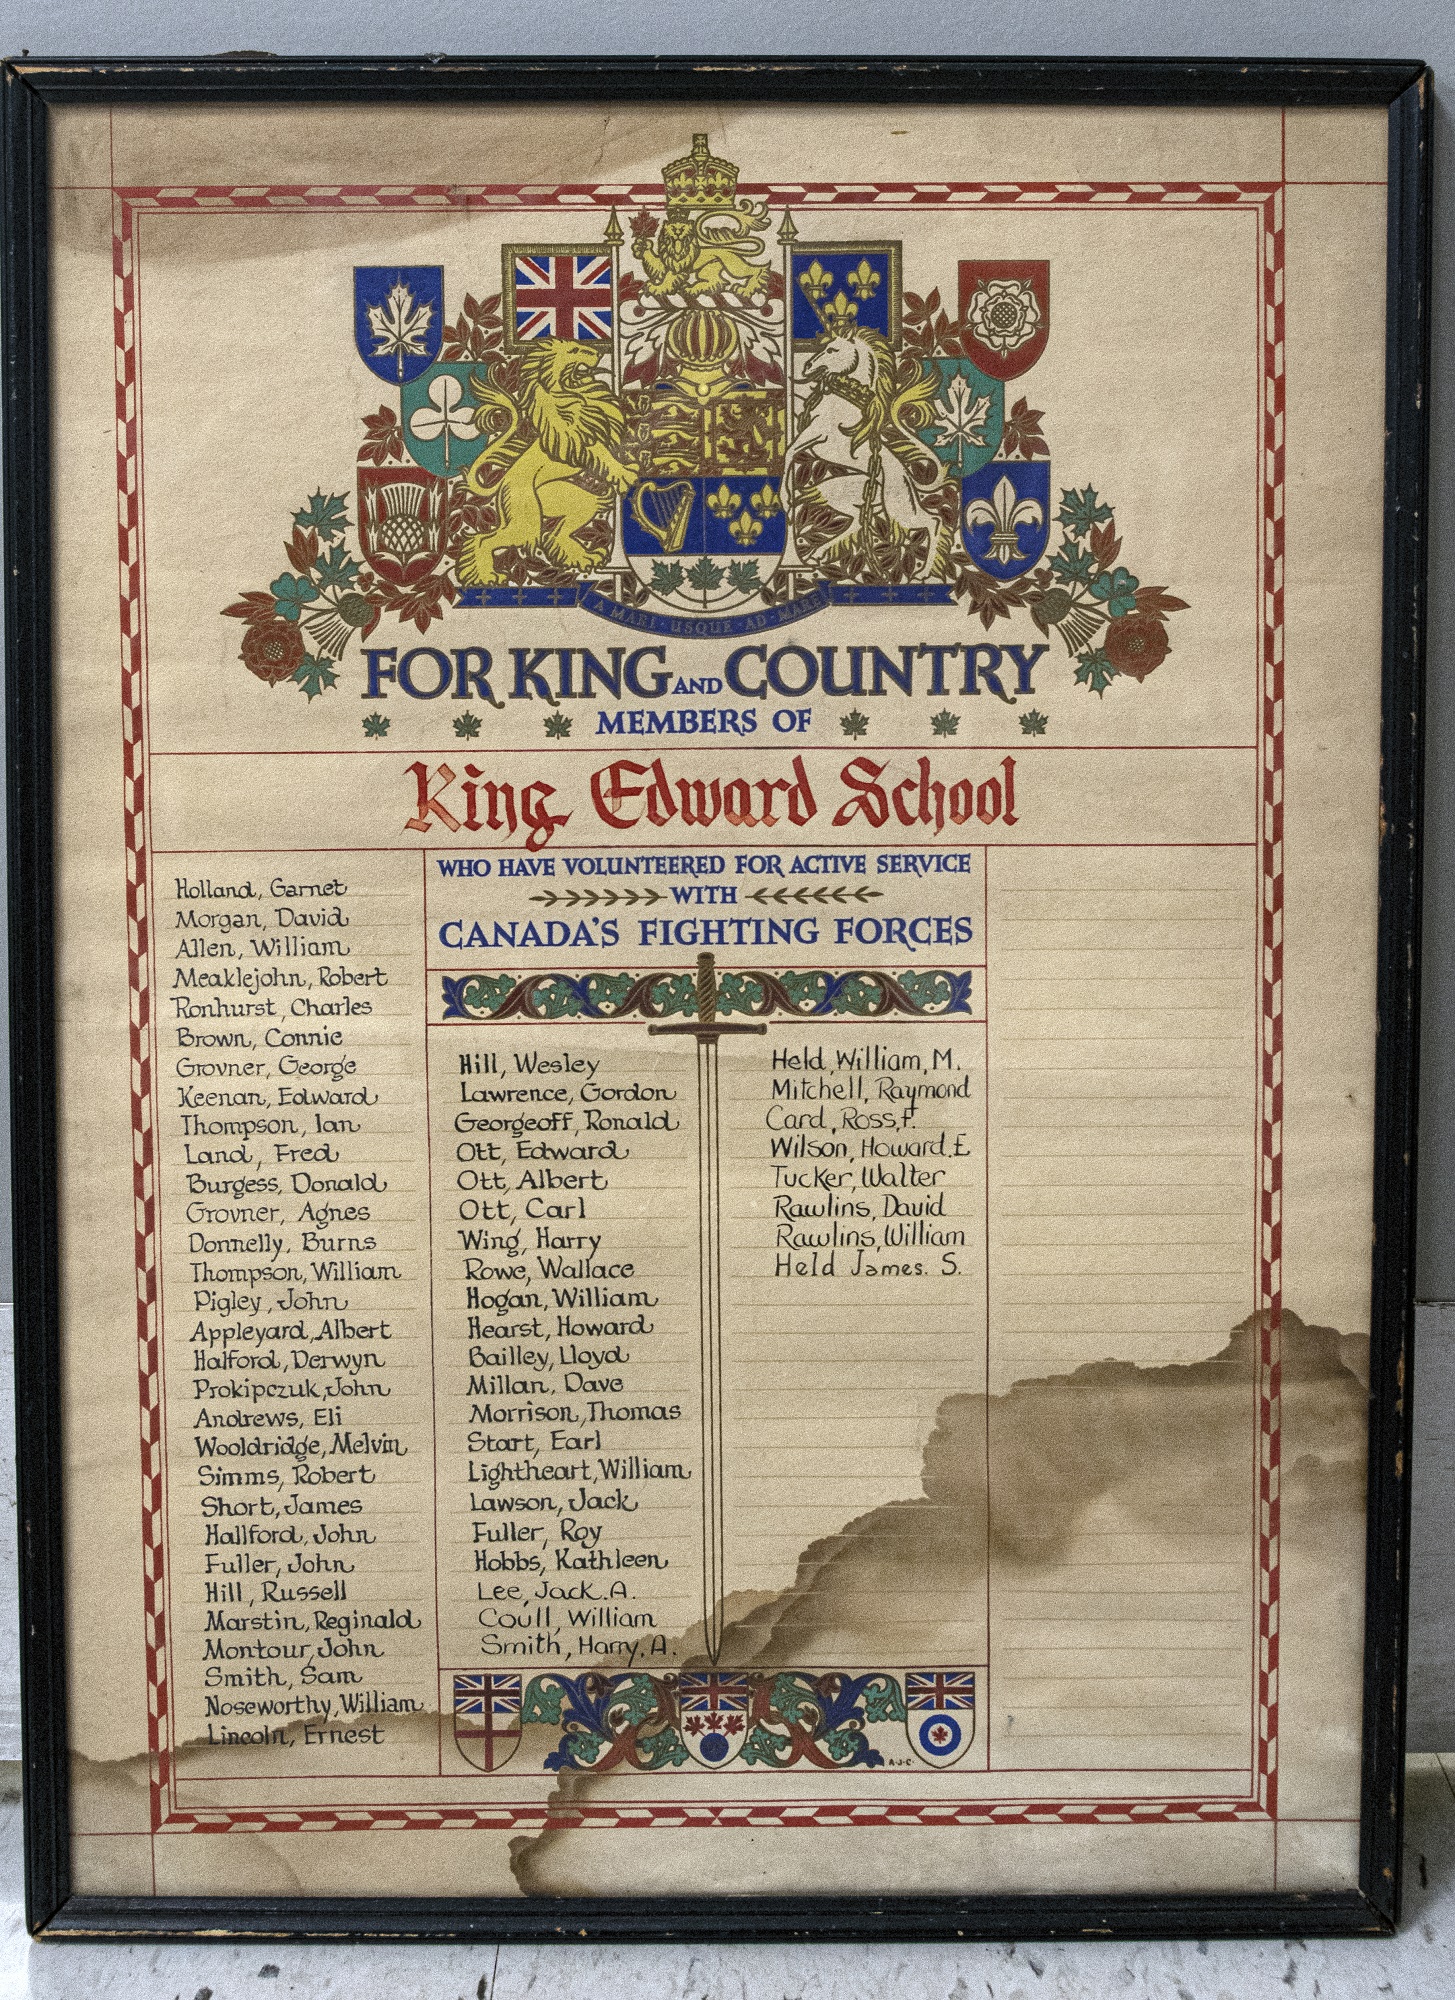 A MARI · USQUE · AD · MARE
FOR KING AND COUNTRY
MEMBERS OF
King Edward School
WHO HAVE VOLUNTEERED FOR ACTIVE SERVICE
WITH
CANADA'S FIGHTING FORCES
Holland, Garnet
Morgan, David
Allen, William
Meaklejohn, Robert
Ronhurst, Charles
Brown, Connie
Grovner, George
Keenan, Edward
Thompson, Ian
Land, Fred
Burgess, Donald
Grovner, Agnes
Donnelly, Burns
Thompson, William
Pigley, John
Appleyard, Albert
Halford, Derwyn
Prokipczuk, John
Andrews, Eli
Wooldridge, Melvin
Simms, Robert
Short, James
Hallford, John
Fuller, John
Hill, Russell
Marstin, Reginald
Montour, John
Smith, Sam
Noseworthy, William
Lincoln, Ernest
Hill, Wesley
Lawrence, Gordon
Georgeoff, Ronald
Ott, Edward
Ott, Albert
Ott, Carl
Wing, Harry
Rowe, Wallace
Hogan, William
Hearst, Howard
Bailley, Lloyd
Millan, Dave
Morrison, Thomas
Start, Earl
Lightheart, William
Lawson, Jack
Fuller, Roy
Hobbs, Kathleen
Lee, Jack. A.
Coull, William
Smith, Harry, A.
Held, William, M.
Mitchell, Raymond
Card, Ross, F.
Wilson, Howard. E
Tucker, Walter
Rawlins, David
Rawlins, William
Held James. S.
A·J·C·